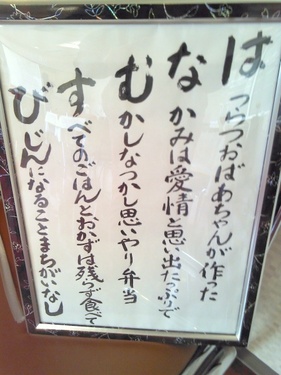 はつらつおばあちゃんが作った
なかみは愛情と思い出たっぷりで
むかしなつかし思いやり弁当
すべてのごはんとおかずは残らず食べて
びじんになることまちがいなし